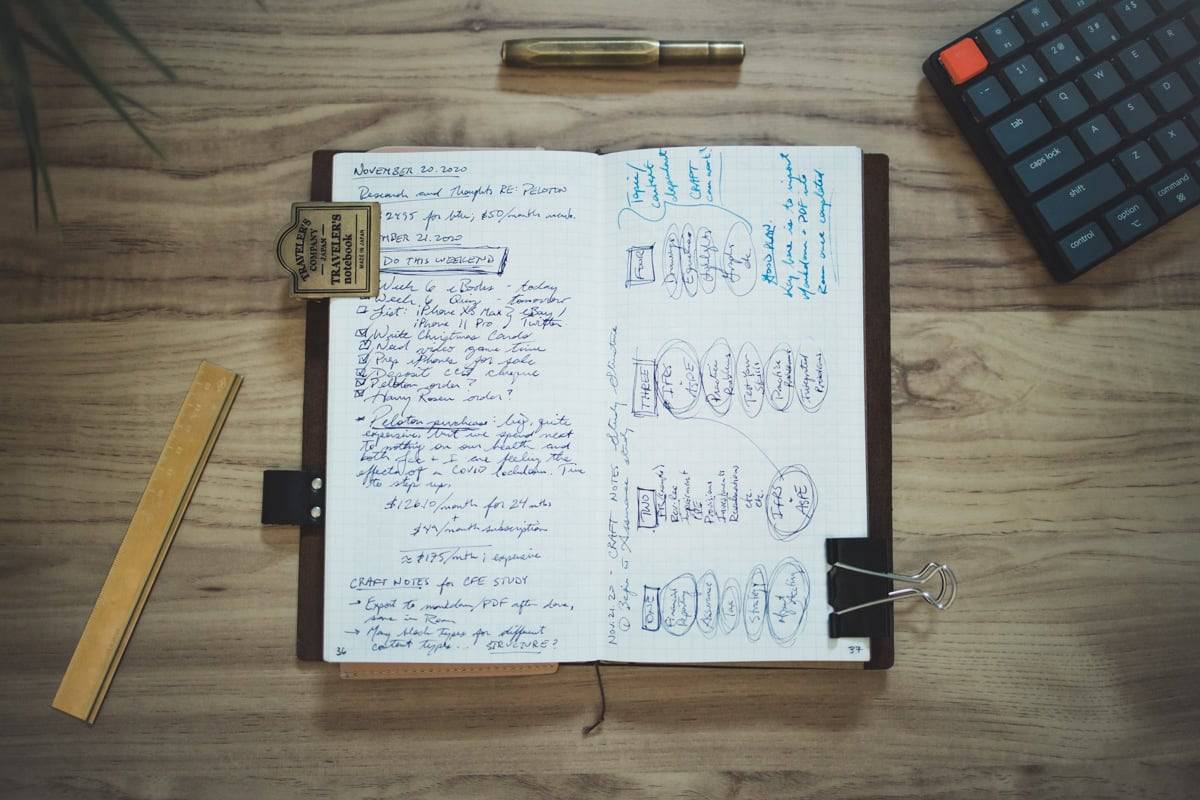 NOVEMBER 20.2020
Research and Thoughts RE: PELOTON
2495 for bike; $50/month memb.
MBER 21.2020
DO THIS WEEKEND
Week 6 eBooks - today
Week 6 Quiz - tomorrow
List: iPhone XS Max? eBay /
iPhone 11 Pro, Twitter
Write Christmas Cards
Need video game time
Prep iPhones for sale
Deposit cheque
Peloton order?
Harry Rosen order?
Peloton purchase: big, quite
expensive but we spend next
to nothing on our health and
both of I are feeling the
effects of a COVID lockdown. Time
to step up.
$126.10/month for 24 mths
+
$49/month subscription
≈ $175/mth; expensive
CRAFT NOTES for CFE STUDY
→ Export to markdown/PDF after done,
save in Roam
→ Many block types for different
content types... STRUCTURE?
36
TRAVELER'S
COMPANY
JAPAN
TRAVELER'S
notebook
MADE IN JAPAN
NOV. 21. 20 - CRAFT NOTES study structure
① Begin w Assurance study
ONE
Financial
Reporting
Assurance
Tax
Strategy
Mgmt
Acctng
TWO
Revenue
Investment
PPE
Provisions
Investments
etc.
etc.
IFRS
+
ASPE
THREE
IFRS
+
ASPE
Practice
Problems
Test Your
Skills
Practice
Integrated
Problems
FOUR
Drawings
Equations
Highlights
Graphs
etc.
Topic/
content
dependent
CRAFT
can work!
However:
Key here is to import
Markdown + PDF into
Roam once completed
37
F1
F2
~
1!
2@
3#
4$
tab
Q
W
E
R
caps lock
A
S
D
shift
Z
X
control
option
command